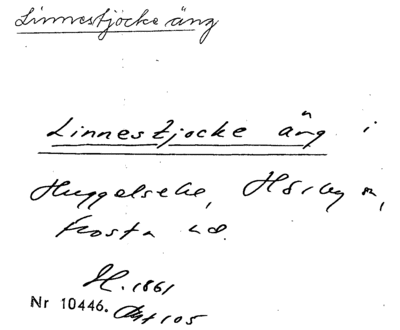 Linnestjocke äng
Linnestjocke äng i
Huggelseke, Hörby sn,
Frosta hd.
H. 1861
Nr 10446. Akt 105